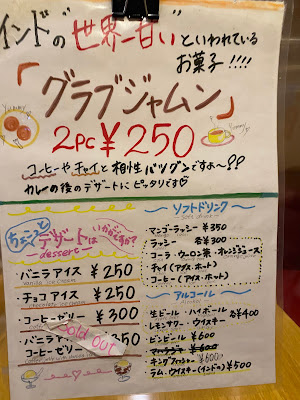 インドの"世界一甘い"といわれている
お菓子!!!!
「グラブジャムン」
Yummy
Yummy
2pc ¥250
コーヒーやチャイと相性バツグンですよ〜??
カレーの後のデザートにピッタリです♡
ちょこっと
デザートは
いかがですか?
dessert
バニラアイス ¥250
チョコアイス ¥250
コーヒーゼリー ¥300
バニラアイス
コーヒーゼリー ¥350
Sold Out
〜ソフトドリンク〜
マンゴーラッシー ¥350
ラッシー 各¥300
コーラ・ウーロン茶・オレンジジュース
チャイ(アイス・ホット)
コーヒー(アイス・ホット)
〜アルコール〜
生ビール・ハイボール 各¥400
レモンサワー・ウイスキー
ビンビール ¥600
¥600
キングフィッシャー ¥600
ラム・ウイスキー(インドの) ¥500